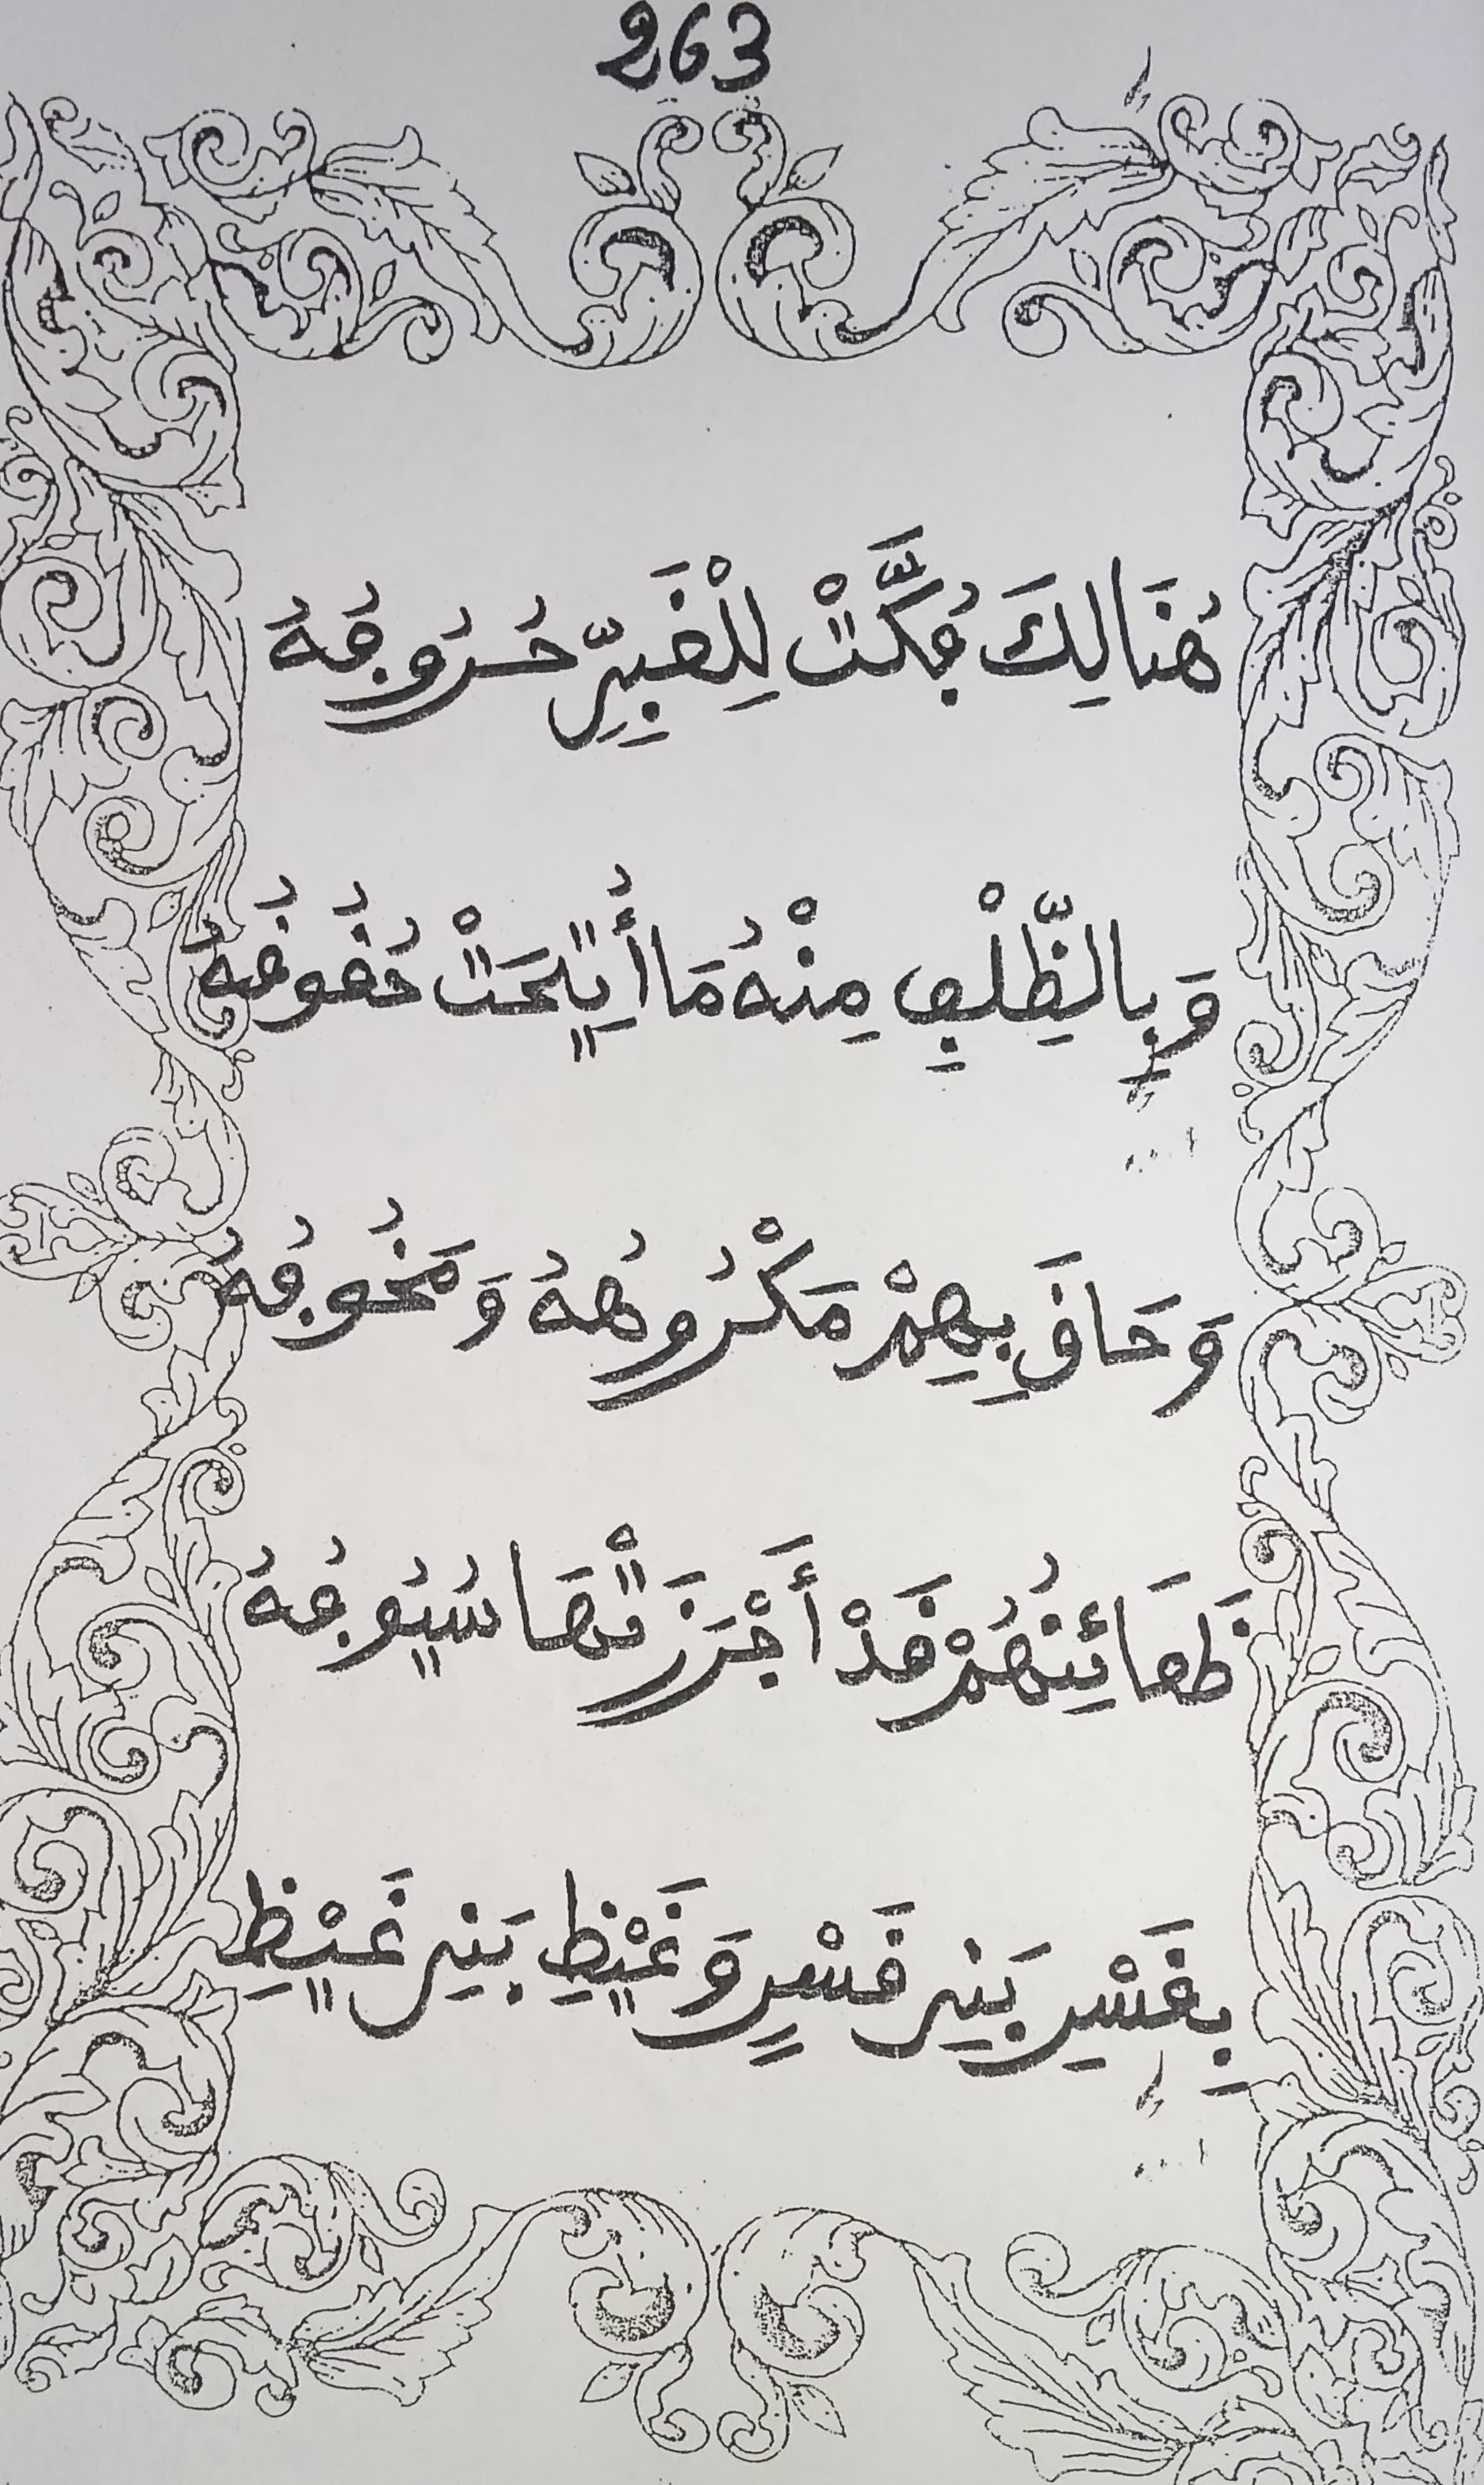 263
هُنَالِكَ فُكَّتْ لِلْغَبِيِّ حُرُوفُهُ
وَبِالظِّلْفِ مِنْهُ مَا أُتِيحَتْ حُقُوقُهُ
وَحَاقَ بِهِمْ مَكْرُوهُهُ وَمَخُوفُهُ
ظَعَائِنُهُمْ قَدْ سُيُوفُهُ
بِقَسْرِ بَنِي قَسْرٍ وَغَيْظِ بَنِي غَيْظِ